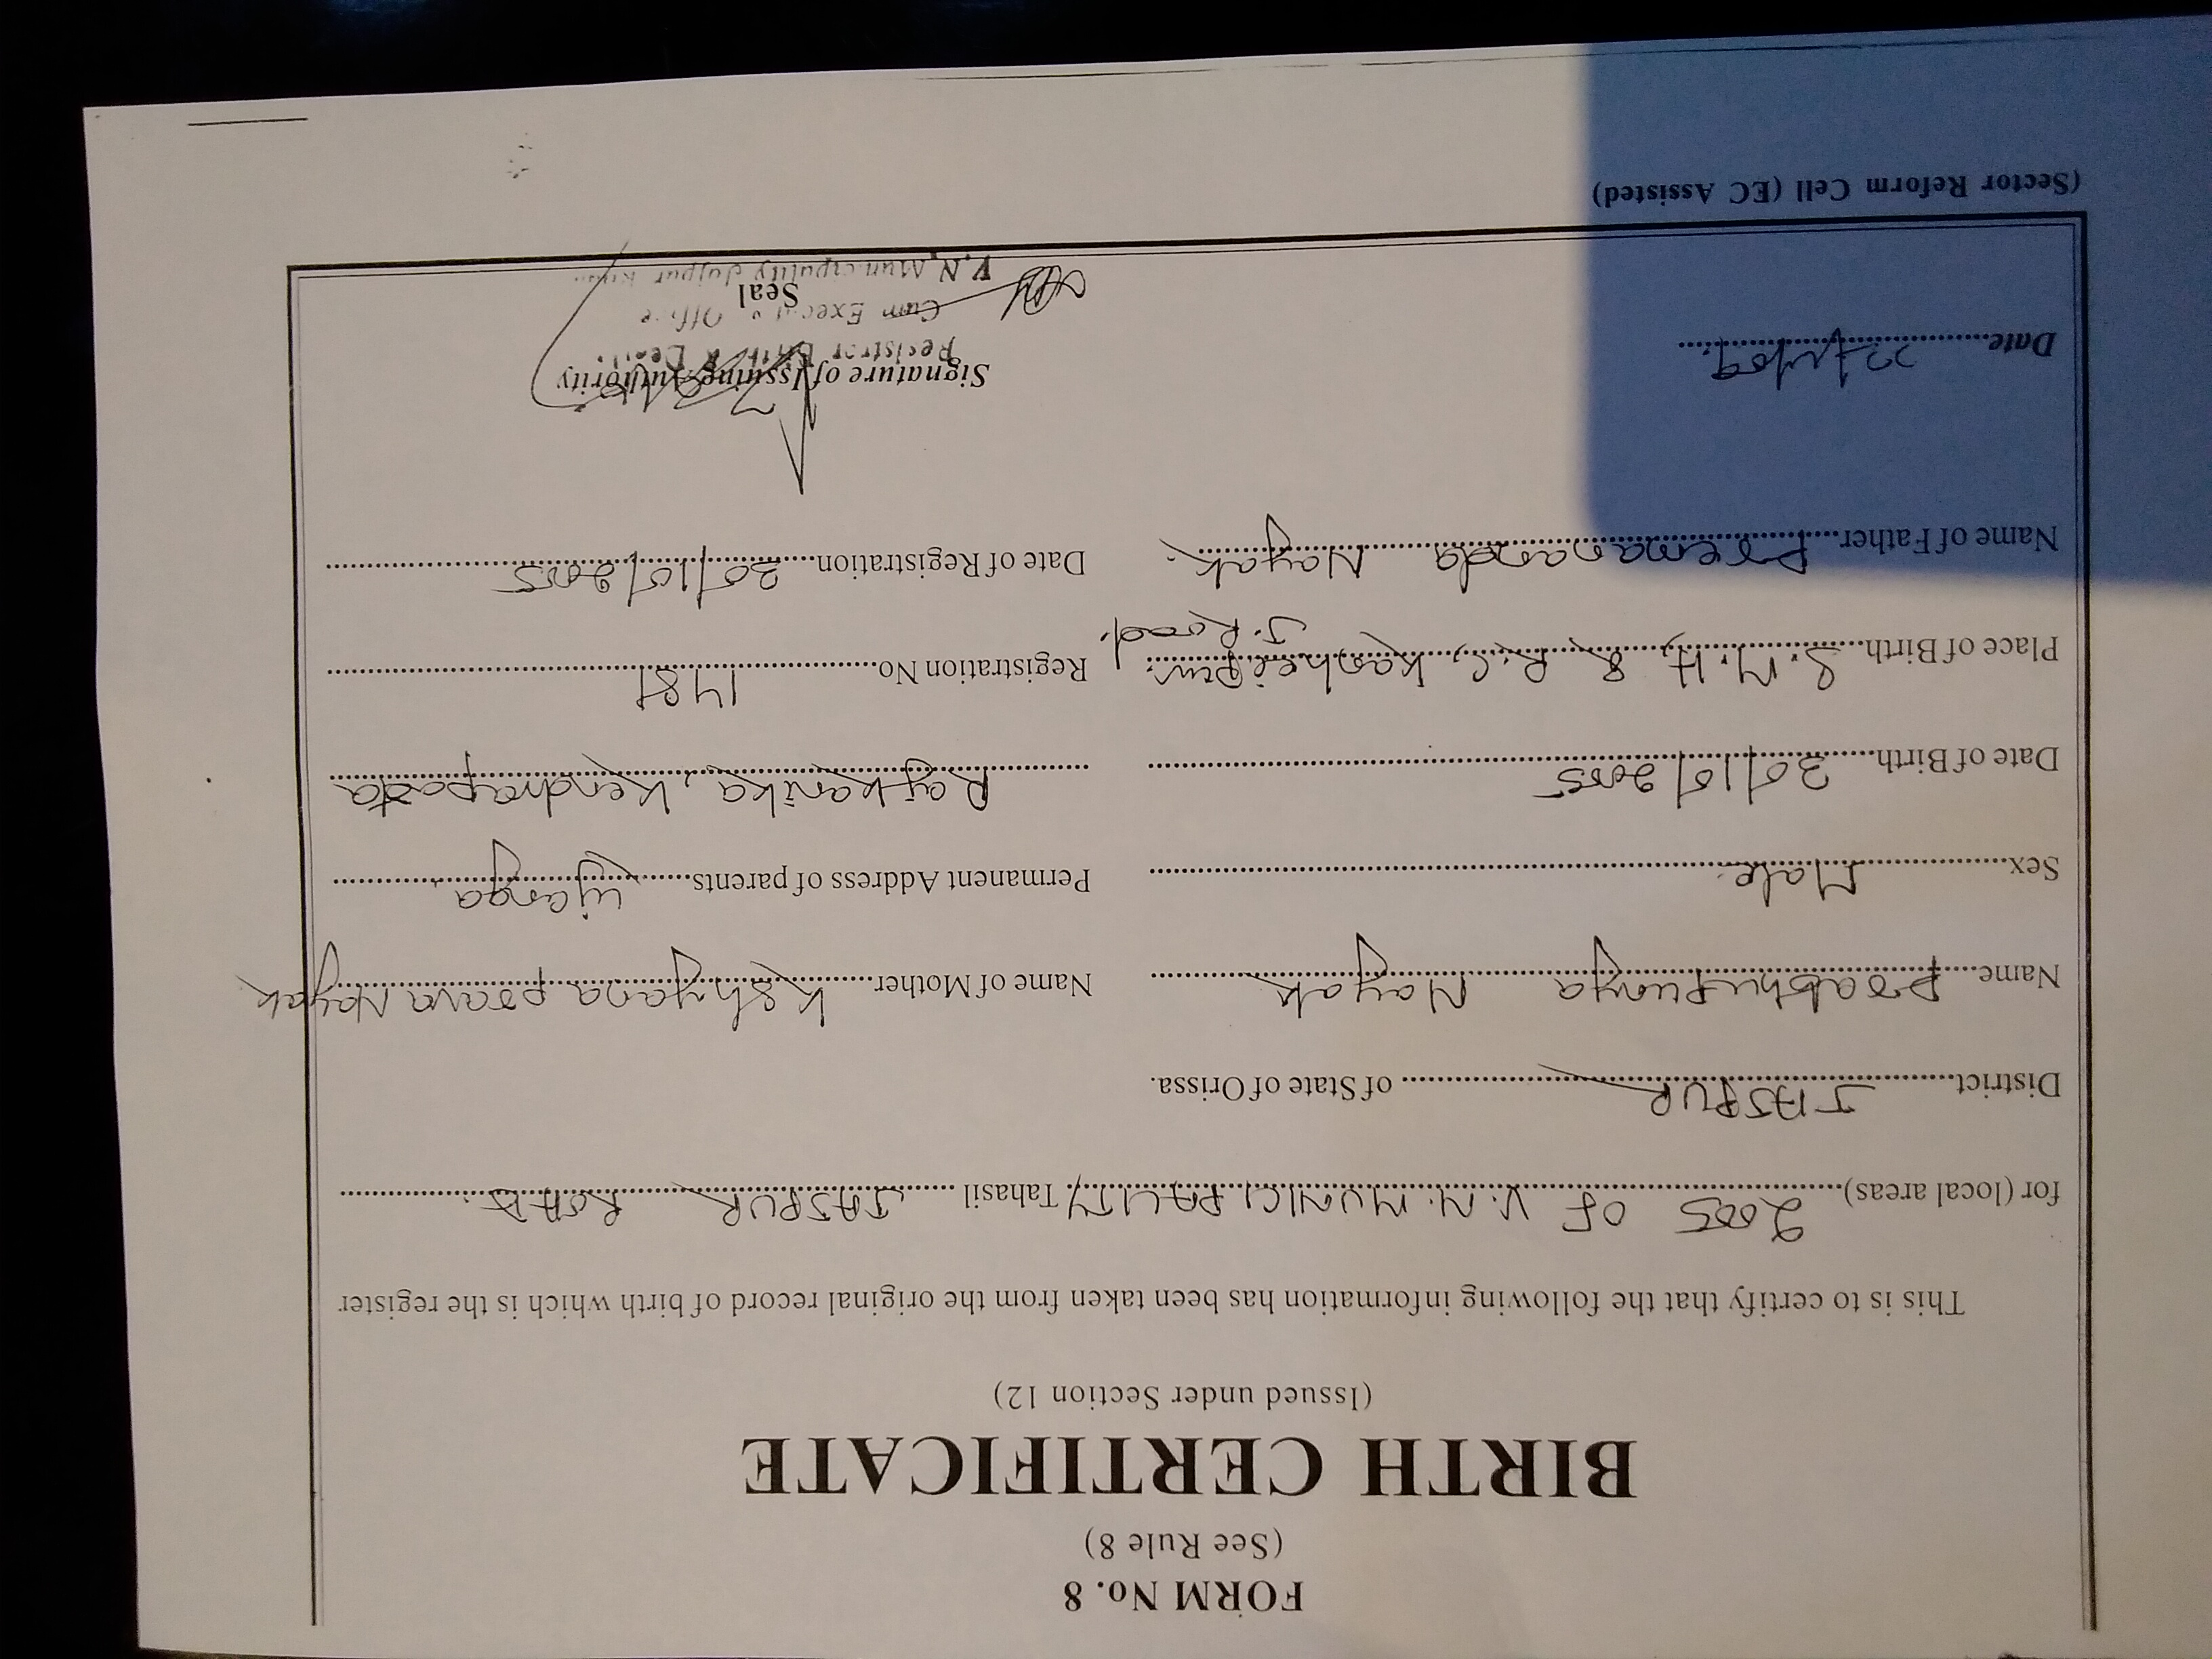 FORM No. 8
(See Rule 8)
BIRTH CERTIFICATE
(Issued under Section 12)
This is to certify that the following information has been taken from the original record of birth which is the register
for (local areas) 2005 OF V.N. MUNICIPALITY Tahasil JAJPUR ROAD.
District JAJPUR of State of Orissa.
Name Prabhupunya Nayak Name of Mother Kshyana prava Nayak
Sex Male. Permanent Address of parents Ujanga
Date of Birth 20/10/2005 Rajkanika, Kendrapada
Place of Birth S.M.H, & R.C, Kanheipur. J. Road. Registration No 1481
Name of Father Premananda Nayak. Date of Registration 20/10/2005
Signature of Issuing Authority
Date
Registrar Birth & Death
Cum Executive Officer
Seal
V.N. Municipality Jajpur Road
(Sector Reform Cell (EC Assisted)